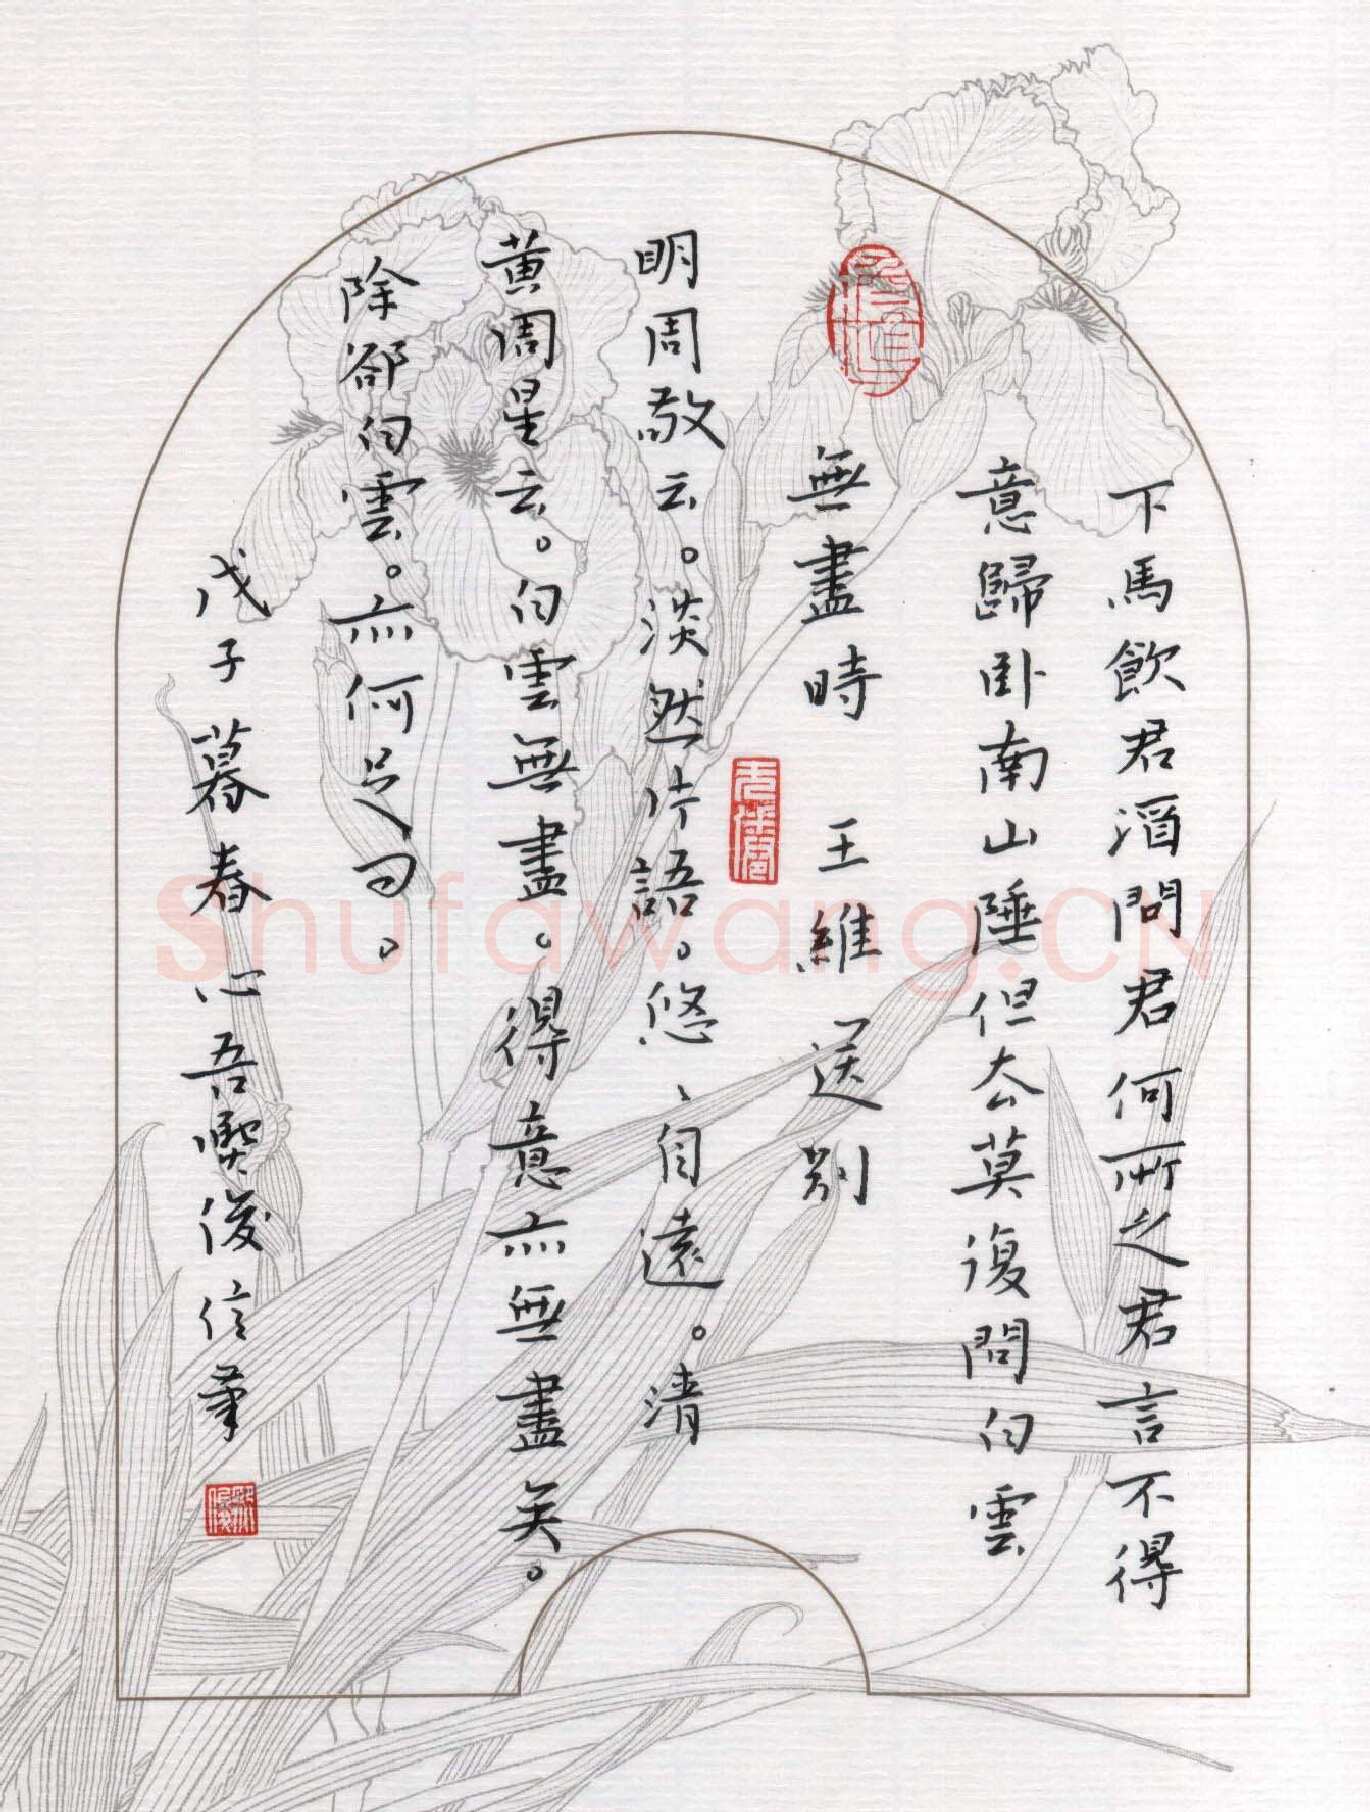 下馬飲君酒問君何所之君言不得
意歸卧南山陲但去莫復問白雲
無盡時　王維送别
明周敬云。淡然片語。悠、自遠。清
黄周星云。白雲無盡。得意亦無盡矣。
除郤白雲。亦何足曰。
戊子暮春心吾熙俊信筆
Shufawang.CN